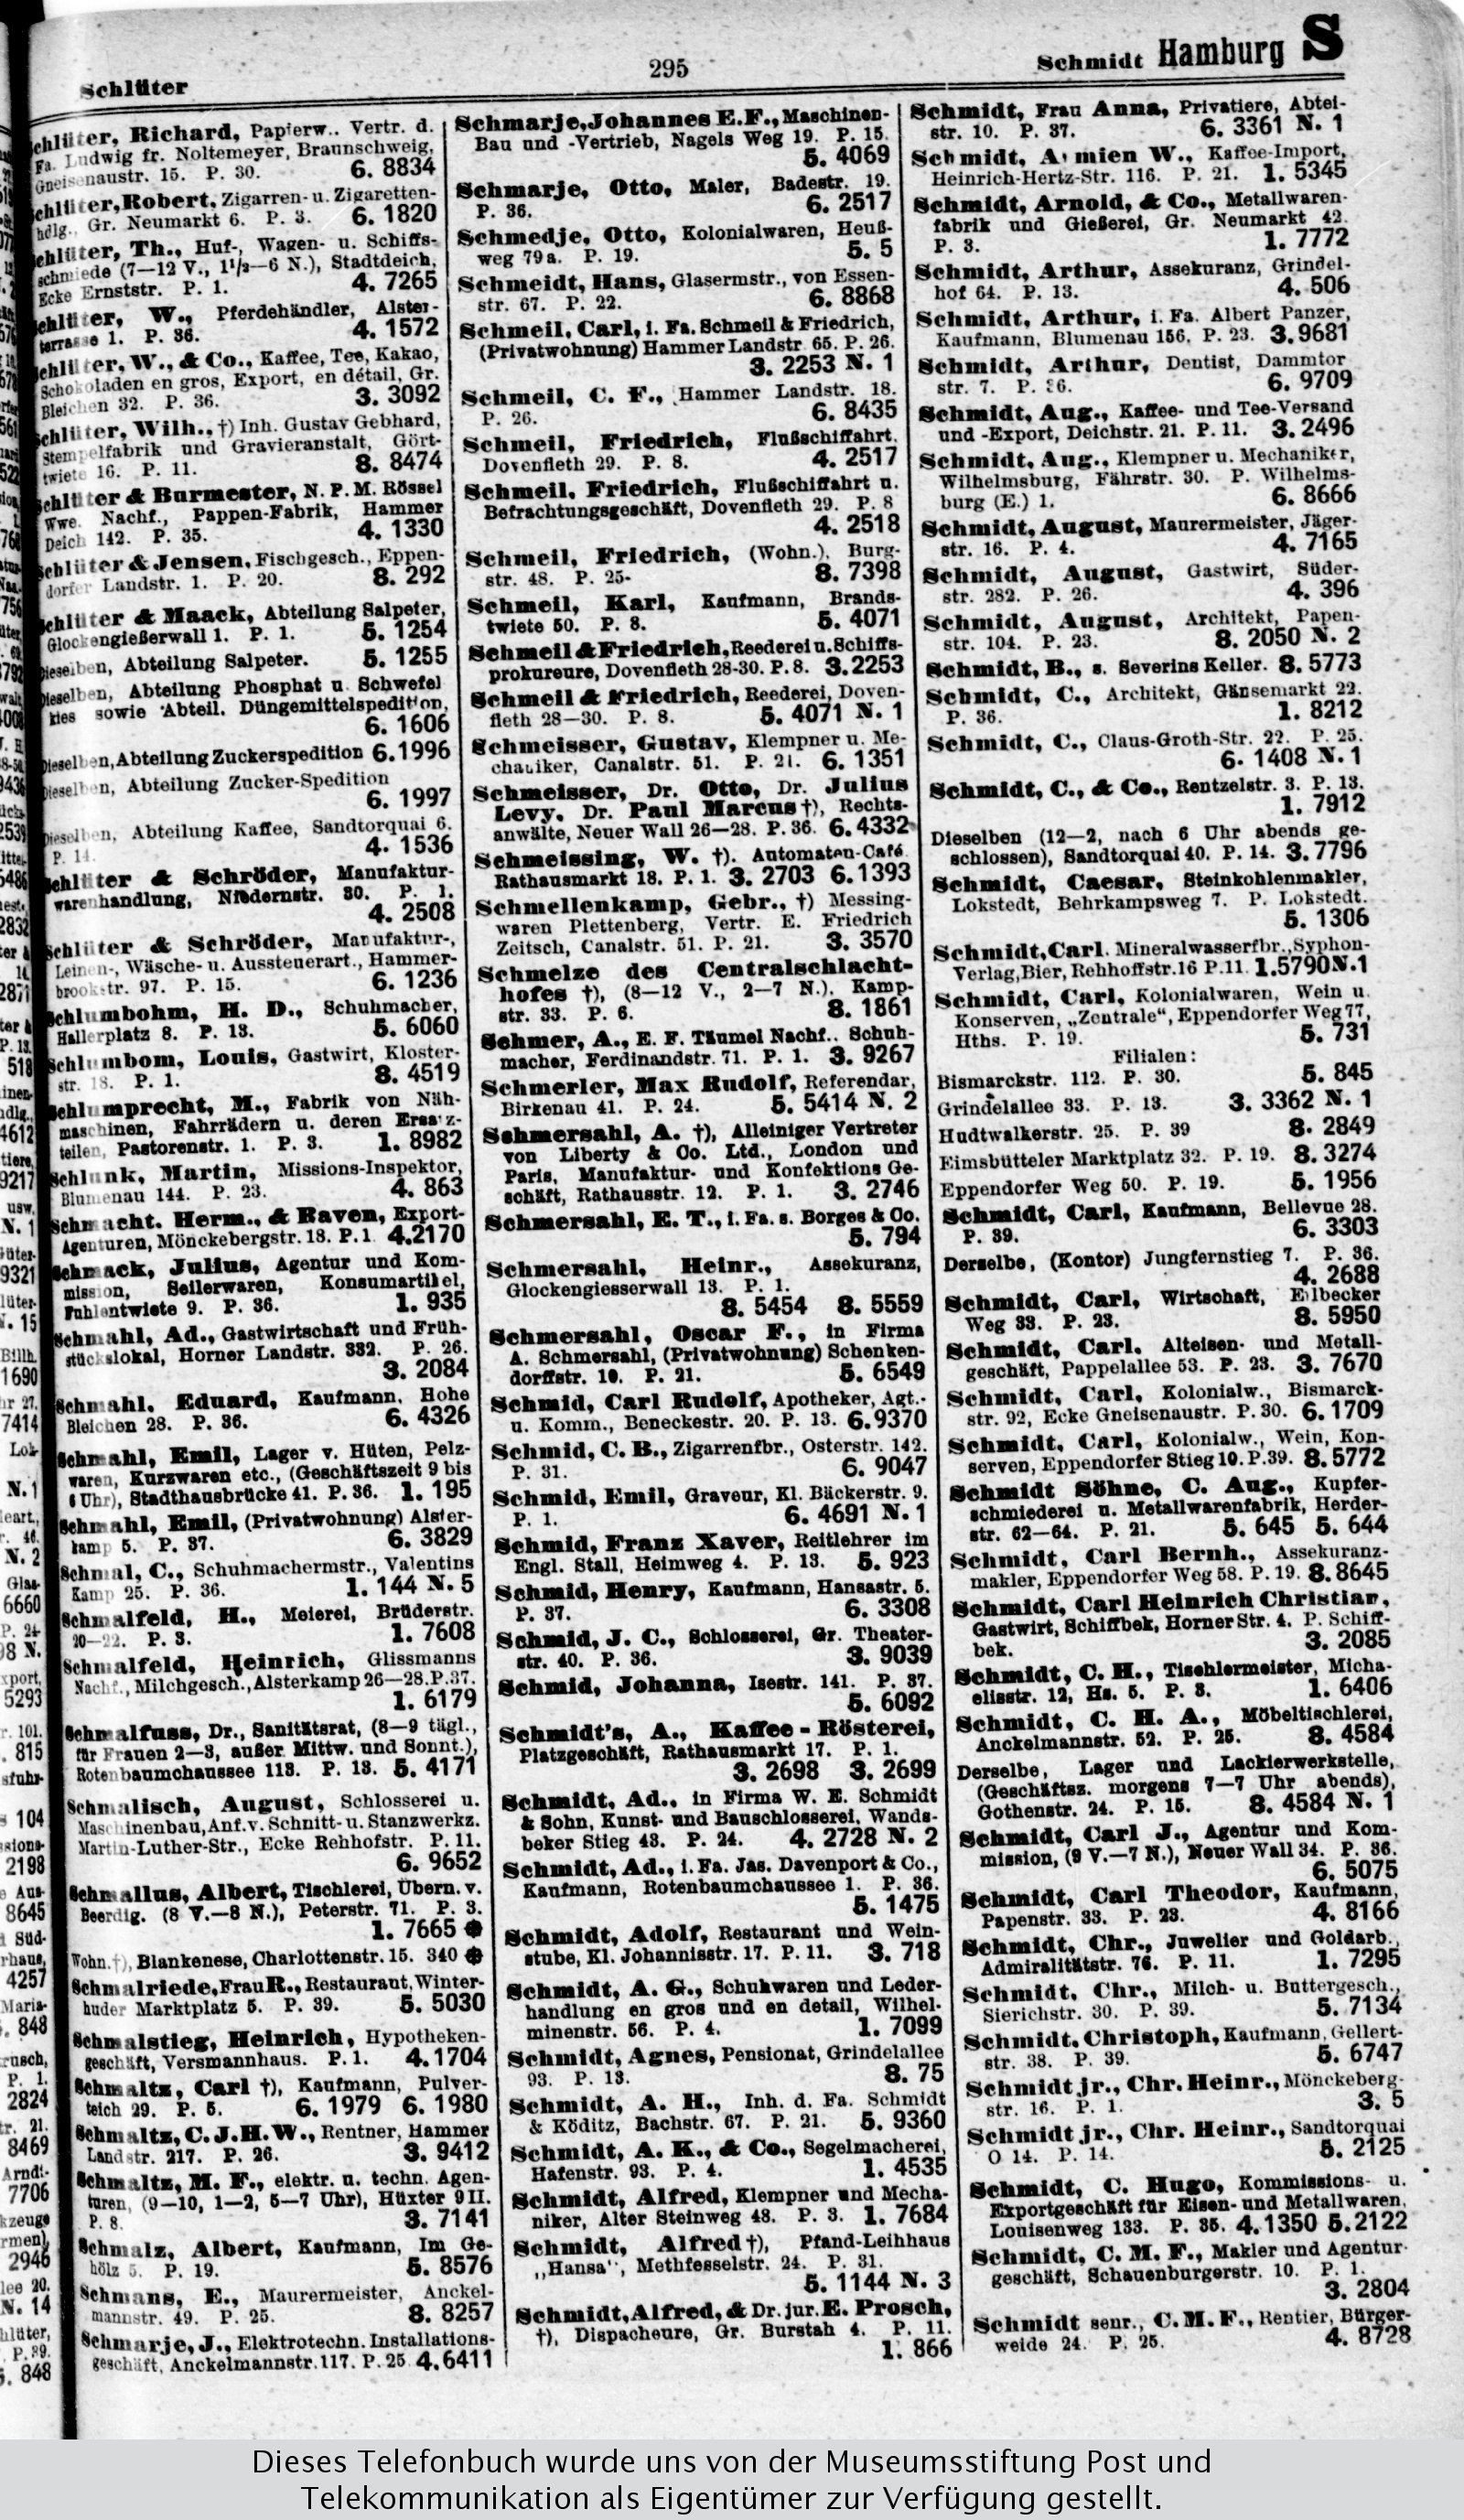 Schlüter
295
Schmidt Hamburg S
Schlüter, Richard, Papierw.. Vertr. d.
Fa. Ludwig fr. Noltemeyer, Braunschweig,
Gneisenaustr. 15. P. 30. 6. 8834
Schlüter, Robert, Zigarren- u. Zigaretten-
hdlg., Gr. Neumarkt 6. P. 3. 6. 1820
Schlüter, Th., Huf-, Wagen- u. Schiffs-
schmiede (7—12 V., 1½—6 N.), Stadtdeich,
Ecke Ernststr. P. 1. 4. 7265
Schlüter, W., Pferdehändler, Alster-
terrasse 1. P. 36. 4. 1572
Schlüter, W., & Co., Kaffee, Tee, Kakao,
Schokoladen en gros, Export, en détail, Gr.
Bleichen 32. P. 36. 3. 3092
Schlüter, Wilh., †) Inh. Gustav Gebhard,
Stempelfabrik und Gravieranstalt, Gört-
twiete 16. P. 11. 8. 8474
Schlüter & Burmester, N. P. M. Rössel
Wwe. Nachf., Pappen-Fabrik, Hammer
Deich 142. P. 35. 4. 1330
Schlüter & Jensen, Fischgesch., Eppen-
dorfer Landstr. 1. P. 20. 8. 292
Schlüter & Maack, Abteilung Salpeter,
Glockengießerwall 1. P. 1. 5. 1254
Dieselben, Abteilung Salpeter. 5. 1255
Dieselben, Abteilung Phosphat u. Schwefel
kies sowie Abteil. Düngemittelspedition,
6. 1606
Dieselben, Abteilung Zuckerspedition 6. 1996
Dieselben, Abteilung Zucker-Spedition
6. 1997
Dieselben, Abteilung Kaffee, Sandtorquai 6.
P. 14. 4. 1536
Schlüter & Schröder, Manufaktur-
warenhandlung, Niedernstr. 80. P. 1.
4. 2508
Schlüter & Schröder, Manufaktur-,
Leinen-, Wäsche- u. Aussteuerart., Hammer-
brookstr. 97. P. 15. 6. 1236
Schlumbohm, H. D., Schuhmacher,
Hallerplatz 8. P. 13. 5. 6060
Schlumbom, Louis, Gastwirt, Kloster-
str. 18. P. 1. 8. 4519
Schlumprecht, M., Fabrik von Näh-
maschinen, Fahrrädern u. deren Ersatz-
teilen, Pastorenstr. 1. P. 3. 1. 8982
Schlunk, Martin, Missions-Inspektor,
Blumenau 144. P. 23. 4. 863
Schmacht. Herm., & Raven, Export-
Agenturen, Mönckebergstr. 18. P. 1 4. 2170
Schmack, Julius, Agentur und Kom-
mission, Seilerwaren, Konsumartikel,
Puhlentwiete 9. P. 36. 1. 935
Schmahl, Ad., Gastwirtschaft und Früh-
stückslokal, Horner Landstr. 332. P. 26.
3. 2084
Schmahl. Eduard, Kaufmann, Hohe
Bleichen 28. P. 36. 6. 4326
Schmahl, Emil, Lager v. Hüten, Pelz-
waren, Kurzwaren etc., (Geschäftszeit 9 bis
6 Uhr), Stadthausbrücke 41. P. 36. 1. 195
Schmahl, Emil, (Privatwohnung) Alster-
kamp 5. P. 37. 6. 3829
Schmal, C., Schuhmachermstr., Valentins
Kamp 25. P. 36. 1. 144 N. 5
Schmalfeld, H., Meierei, Brüderstr.
20—22. P. 3. 1. 7608
Schmalfeld, Heinrich, Glissmanns
Nachf., Milchgesch., Alsterkamp 26—28. P. 37.
1. 6179
Schmalfuss, Dr., Sanitätsrat, (8—9 tägl.,
für Frauen 2—3, außer Mittw. und Sonnt.),
Rotenbaumchaussee 113. P. 13. 5. 4171
Schmalisch, August, Schlosserei u.
Maschinenbau, Anf. v. Schnitt- u. Stanzwerkz.
Martin-Luther-Str., Ecke Rehhofstr. P. 11.
6. 9652
Schmallus, Albert, Tischlerei, Übern. v.
Beerdig. (8 V.—8 N.), Peterstr. 71. P. 3.
1. 7665
Wohn. †), Blankenese, Charlottenstr. 15. 340
Schmalriede, Frau R., Restaurant, Winter-
huder Marktplatz 5. P. 39. 5. 5030
Schmalstieg, Heinrich, Hypotheken-
geschäft, Versmannhaus. P. 1. 4. 1704
Schmaltz, Carl †), Kaufmann, Pulver-
teich 29. P. 5. 6. 1979 6. 1980
Schmaltz, C. J. H. W., Rentner, Hammer
Landstr. 217. P. 26. 3. 9412
Schmaltz, M. F., elektr. u. techn. Agen-
turen, (9—10, 1—2, 5—7 Uhr), Hüxter 9 II.
P. 8. 3. 7141
Schmalz, Albert, Kaufmann, Im Ge-
hölz 5. P. 19. 5. 8576
Schmans, E., Maurermeister, Anckel-
mannstr. 49. P. 25. 8. 8257
Schmarje, J., Elektrotechn. Installations-
geschäft, Anckelmannstr. 117. P. 25 4. 6411
Schmarje, Johannes E. F., Maschinen-
Bau und -Vertrieb, Nagels Weg 19. P. 15.
5. 4069
Schmarje, Otto, Maler, Badestr. 19.
P. 36. 6. 2517
Schmedje, Otto, Kolonialwaren, Heuß-
weg 79a. P. 19. 5. 5
Schmeidt, Hans, Glasermstr., von Essen-
str. 67. P. 22. 6. 8868
Schmeil, Carl, i. Fa. Schmeil & Friedrich,
(Privatwohnung) Hammer Landstr. 65. P. 26.
3. 2253 N. 1
Schmeil, C. F., Hammer Landstr. 18.
P. 26. 6. 8435
Schmeil, Friedrich, Flußschiffahrt,
Dovenfleth 29. P. 8. 4. 2517
Schmeil, Friedrich, Flußschiffahrt u.
Befrachtungsgeschäft, Dovenfleth 29. P. 8
4. 2518
Schmeil, Friedrich, (Wohn.), Burg-
str. 48. P. 25. 8. 7398
Schmeil, Karl, Kaufmann, Brands-
twiete 50. P. 8. 5. 4071
Schmeil & Friedrich, Reederei u. Schiffs-
prokureure, Dovenfleth 28-30. P. 8. 3. 2253
Schmeil & Friedrich, Reederei, Doven-
fleth 28—30. P. 8. 5. 4071 N. 1
Schmeisser, Gustav, Klempner u. Me-
chaniker, Canalstr. 51. P. 21. 6. 1351
Schmeisser, Dr. Otto, Dr. Julius
Levy, Dr. Paul Marcus †), Rechts-
anwälte, Neuer Wall 26—28. P. 36. 6. 4332
Schmeissing, W. †). Automaten-Café.
Rathausmarkt 18. P. 1. 3. 2703 6. 1393
Schmellenkamp, Gebr., †) Messing-
waren Plettenberg, Vertr. E. Friedrich
Zeitsch, Canalstr. 51. P. 21. 3. 3570
Schmelze des Centralschlacht-
hofes †), (8—12 V., 2—7 N.). Kamp-
str. 33. P. 6. 8. 1861
Schmer, A., E. F. Täumel Nachf.. Schuh-
macher, Ferdinandstr. 71. P. 1. 3. 9267
Schmerler, Max Rudolf, Referendar,
Birkenau 41. P. 24. 5. 5414 N. 2
Schmersahl, A. †), Alleiniger Vertreter
von Liberty & Co. Ltd., London und
Paris, Manufaktur- und Konfektions Ge-
schäft, Rathausstr. 12. P. 1. 3. 2746
Schmersahl, E. T., i. Fa. s. Borges & Co.
5. 794
Schmersahl, Heinr., Assekuranz,
Glockengiesserwall 13. P. 1.
8. 5454 8. 5559
Schmersahl, Oscar F., in Firma
A. Schmersahl, (Privatwohnung) Schenken-
dorffstr. 10. P. 21. 5. 6549
Schmid, Carl Rudolf, Apotheker, Agt.-
u. Komm., Beneckestr. 20. P. 13. 6. 9370
Schmid, C. B., Zigarrenfbr., Osterstr. 142.
P. 31. 6. 9047
Schmid, Emil, Graveur, Kl. Bäckerstr. 9.
P. 1. 6. 4691 N. 1
Schmid, Franz Xaver, Reitlehrer im
Engl. Stall, Heimweg 4. P. 13. 5. 923
Schmid, Henry, Kaufmann, Hansastr. 5.
P. 37. 6. 3308
Schmid, J. C., Schlosserei, Gr. Theater-
str. 40. P. 36. 3. 9039
Schmid, Johanna, Isestr. 141. P. 37.
5. 6092
Schmidt's, A., Kaffee-Rösterei,
Platzgeschäft, Rathausmarkt 17. P. 1.
3. 2698 3. 2699
Schmidt, Ad., in Firma W. E. Schmidt
& Sohn, Kunst- und Bauschlosserei, Wands-
beker Stieg 43. P. 24. 4. 2728 N. 2
Schmidt, Ad., i. Fa. Jas. Davenport & Co.,
Kaufmann, Rotenbaumchaussee 1. P. 36.
5. 1475
Schmidt, Adolf, Restaurant und Wein-
stube, Kl. Johannisstr. 17. P. 11. 3. 718
Schmidt, A. G., Schuhwaren und Leder-
handlung en gros und en detail, Wilhel-
minenstr. 56. P. 4. 1. 7099
Schmidt, Agnes, Pensionat, Grindelallee
93. P. 13. 8. 75
Schmidt, A. H., Inh. d. Fa. Schmidt
& Köditz, Bachstr. 67. P. 21. 5. 9360
Schmidt, A. K., & Co., Segelmacherei,
Hafenstr. 93. P. 4. 1. 4535
Schmidt, Alfred, Klempner und Mecha-
niker, Alter Steinweg 48. P. 3. 1. 7684
Schmidt, Alfred †), Pfand-Leihhaus
„Hansa“, Methfesselstr. 24. P. 31.
5. 1144 N. 3
Schmidt, Alfred, & Dr. jur. E. Prosch,
†), Dispacheure, Gr. Burstah 4. P. 11.
1. 866
Schmidt, Frau Anna, Privatiere, Abtei-
str. 10. P. 37. 6. 3361 N. 1
Schmidt, W., Kaffee-Import,
Heinrich-Hertz-Str. 116. P. 21. 1. 5345
Schmidt, Arnold, & Co., Metallwaren-
fabrik und Gießerei, Gr. Neumarkt 42.
P. 3. 1. 7772
Schmidt, Arthur, Assekuranz, Grindel-
hof 64. P. 13. 4. 506
Schmidt, Arthur, i. Fa. Albert Panzer,
Kaufmann, Blumenau 156. P. 23. 3. 9681
Schmidt, Arthur, Dentist, Dammtor
str. 7. P. 36. 6. 9709
Schmidt, Aug., Kaffee- und Tee-Versand
und -Export, Deichstr. 21. P. 11. 3. 2496
Schmidt, Aug., Klempner u. Mechaniker,
Wilhelmsburg, Fährstr. 30. P. Wilhelms-
burg (E.) 1. 6. 8666
Schmidt, August, Maurermeister, Jäger-
str. 16. P. 4. 4. 7165
Schmidt, August, Gastwirt, Süder-
str. 282. P. 26. 4. 396
Schmidt, August, Architekt, Papen-
str. 104. P. 23. 8. 2050 N. 2
Schmidt, B., s. Severins Keller. 8. 5773
Schmidt, C., Architekt, Gänsemarkt 22.
P. 36. 1. 8212
Schmidt, C., Claus-Groth-Str. 22. P. 25.
6. 1408 N. 1
Schmidt, C., & Co., Rentzelstr. 3. P. 13.
1. 7912
Dieselben (12—2, nach 6 Uhr abends ge-
schlossen), Sandtorquai 40. P. 14. 3. 7796
Schmidt, Caesar, Steinkohlenmakler,
Lokstedt, Behrkampsweg 7. P. Lokstedt.
5. 1306
Schmidt, Carl. Mineralwasserfbr., Syphon-
Verlag, Bier, Rehhoffstr. 16 P. 11. 1. 5790 N. 1
Schmidt, Carl, Kolonialwaren, Wein u.
Konserven, „Zentrale“, Eppendorfer Weg 77,
Hths. P. 19. 5. 731
Filialen:
Bismarckstr. 112. P. 30. 5. 845
Grindelallee 33. P. 13. 3. 3362 N. 1
Hudtwalkerstr. 25. P. 39 8. 2849
Eimsbütteler Marktplatz 32. P. 19. 8. 3274
Eppendorfer Weg 50. P. 19. 5. 1956
Schmidt, Carl, Kaufmann, Bellevue 28.
P. 39. 6. 3303
Derselbe, (Kontor) Jungfernstieg 7. P. 36.
4. 2688
Schmidt, Carl, Wirtschaft, Eilbecker
Weg 33. P. 23. 8. 5950
Schmidt, Carl. Alteisen- und Metall-
geschäft, Pappelallee 53. P. 23. 3. 7670
Schmidt, Carl, Kolonialw., Bismarck-
str. 92, Ecke Gneisenaustr. P. 30. 6. 1709
Schmidt, Carl, Kolonialw., Wein, Kon-
serven, Eppendorfer Stieg 10. P. 39. 8. 5772
Schmidt Söhne, C. Aug., Kupfer-
schmiederei u. Metallwarenfabrik, Herder-
str. 62—64. P. 21. 5. 645 5. 644
Schmidt, Carl Bernh., Assekuranz-
makler, Eppendorfer Weg 58. P. 19. 8. 8645
Schmidt, Carl Heinrich Christian,
Gastwirt, Schiffbek, Horner Str. 4. P. Schiff-
bek. 3. 2085
Schmidt, C. H., Tischlermeister, Micha-
elisstr. 12, Hs. 5. P. 3. 1. 6406
Schmidt, C. H. A., Möbeltischlerei,
Anckelmannstr. 52. P. 25. 8. 4584
Derselbe, Lager und Lackierwerkstelle,
(Geschäftsz. morgens 7—7 Uhr abends),
Gothenstr. 24. P. 15. 8. 4584 N. 1
Schmidt, Carl J., Agentur und Kom-
mission, (9 V.—7 N.), Neuer Wall 34. P. 36.
6. 5075
Schmidt, Carl Theodor, Kaufmann,
Papenstr. 33. P. 23. 4. 8166
Schmidt, Chr., Juwelier und Goldarb.,
Admiralitätstr. 76. P. 11. 1. 7295
Schmidt, Chr., Milch- u. Buttergesch.,
Sierichstr. 30. P. 39. 5. 7134
Schmidt, Christoph, Kaufmann, Gellert-
str. 38. P. 39. 5. 6747
Schmidt jr., Chr. Heinr., Mönckeberg-
str. 16. P. 1. 3. 5
Schmidt jr., Chr. Heinr., Sandtorquai
O 14. P. 14. 5. 2125
Schmidt, C. Hugo, Kommissions- u.
Exportgeschäft für Eisen- und Metallwaren,
Louisenweg 133. P. 35. 4. 1350 5. 2122
Schmidt, C. M. F., Makler und Agentur-
geschäft, Schauenburgerstr. 10. P. 1.
3. 2804
Schmidt senr., C. M. F., Rentier, Bürger-
weide 24. P. 25. 4. 8728
Dieses Telefonbuch wurde uns von der Museumsstiftung Post und
Telekommunikation als Eigentümer zur Verfügung gestellt.